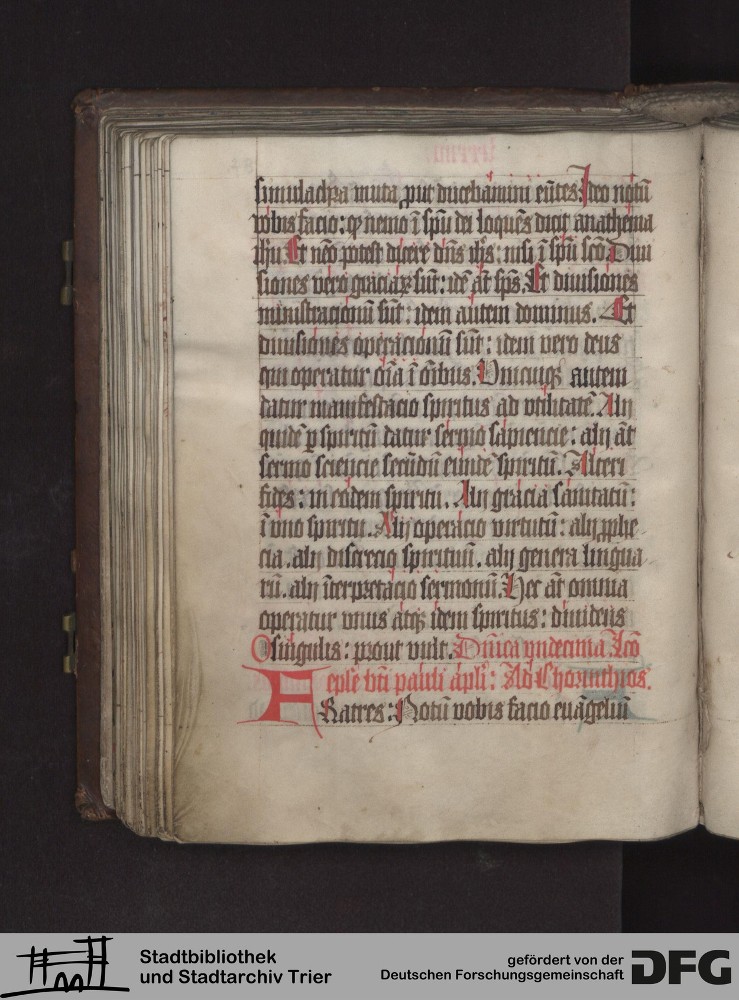 simulachra muta ꝓut ducebamini eūtes. Ideo notū
vobis facio: qꝫ nemo ī spū dei loquēs dicit anathema
ihū. Et nēo potest dicere dn̄s ihs̄: nisi ī spū scō. Diui
siones vero graciaꝝ sūt: idē āt sps̄. Et diuisiones
ministracionū sūt: idem autem dominus. Et
diuisiones operacionū sūt: idem vero deus
qui operatur oīa ī oībus. Vnicuiqꝫ autem
datur manifestacio spiritus ad vtilitatē. Alij
quidē ꝑ spiritū datur sermo sapiencie: alij āt
sermo sciencie secūdū eundē spiritū. Alteri
fides: in eodem spiritu. Alij gracia sanitatū:
ī vno spiritu. Alij operacio virtutū: alij ꝓphe
cia. alij discrecio spirituū. alij genera lingua
rū. alij īterpretacio sermonū. Hec āt omnia
operatur vnus atqꝫ idem spiritus: diuidens
singulis: prout vult. Dn̄ica vndecima Lcō
eplē bt̄i pauli apl̄i: Ad Chorinthios.
FRatres: Notū vobis facio euāgeliū
Stadtbibliothek
und Stadtarchiv Trier
gefördert von der
Deutschen Forschungsgemeinschaft
DFG